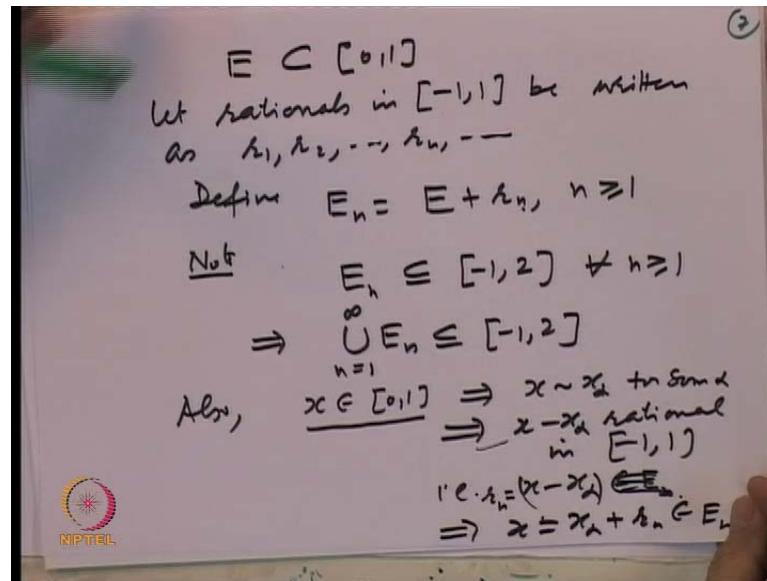 ②
E ⊂ [0,1]
Let rationals in [-1,1] be written
as r₁, r₂, --, rₙ, ---
Define Eₙ = E + rₙ, n ≥ 1
Note Eₙ ⊆ [-1,2] ∀ n ≥ 1
⇒ ∞⋃n=1 Eₙ ⊆ [-1,2]
Also, x ∈ [0,1] ⇒ x ~ x_α for some α
⇒ x - x_α rational
in [-1,1]
i.e. rₙ = (x - x_α)
⇒ x = x_α + rₙ ∈ Eₙ
NPTEL